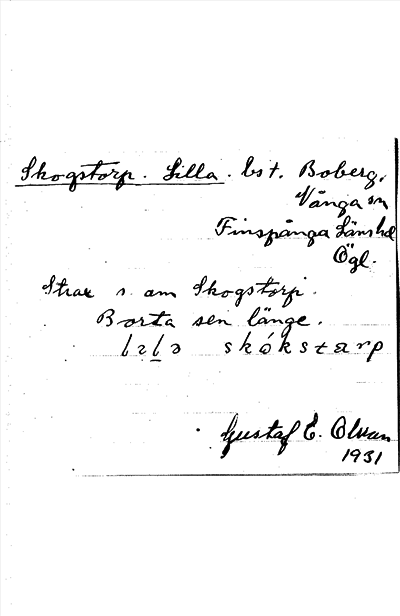 Skogstorp. Lilla. bst. Boberg,
Vånga sn
Finspånga Länshd
Ögl.
Strax s. om Skogstorp.
Borta sen länge.
skókstarp
Gustaf E. Olman
1931